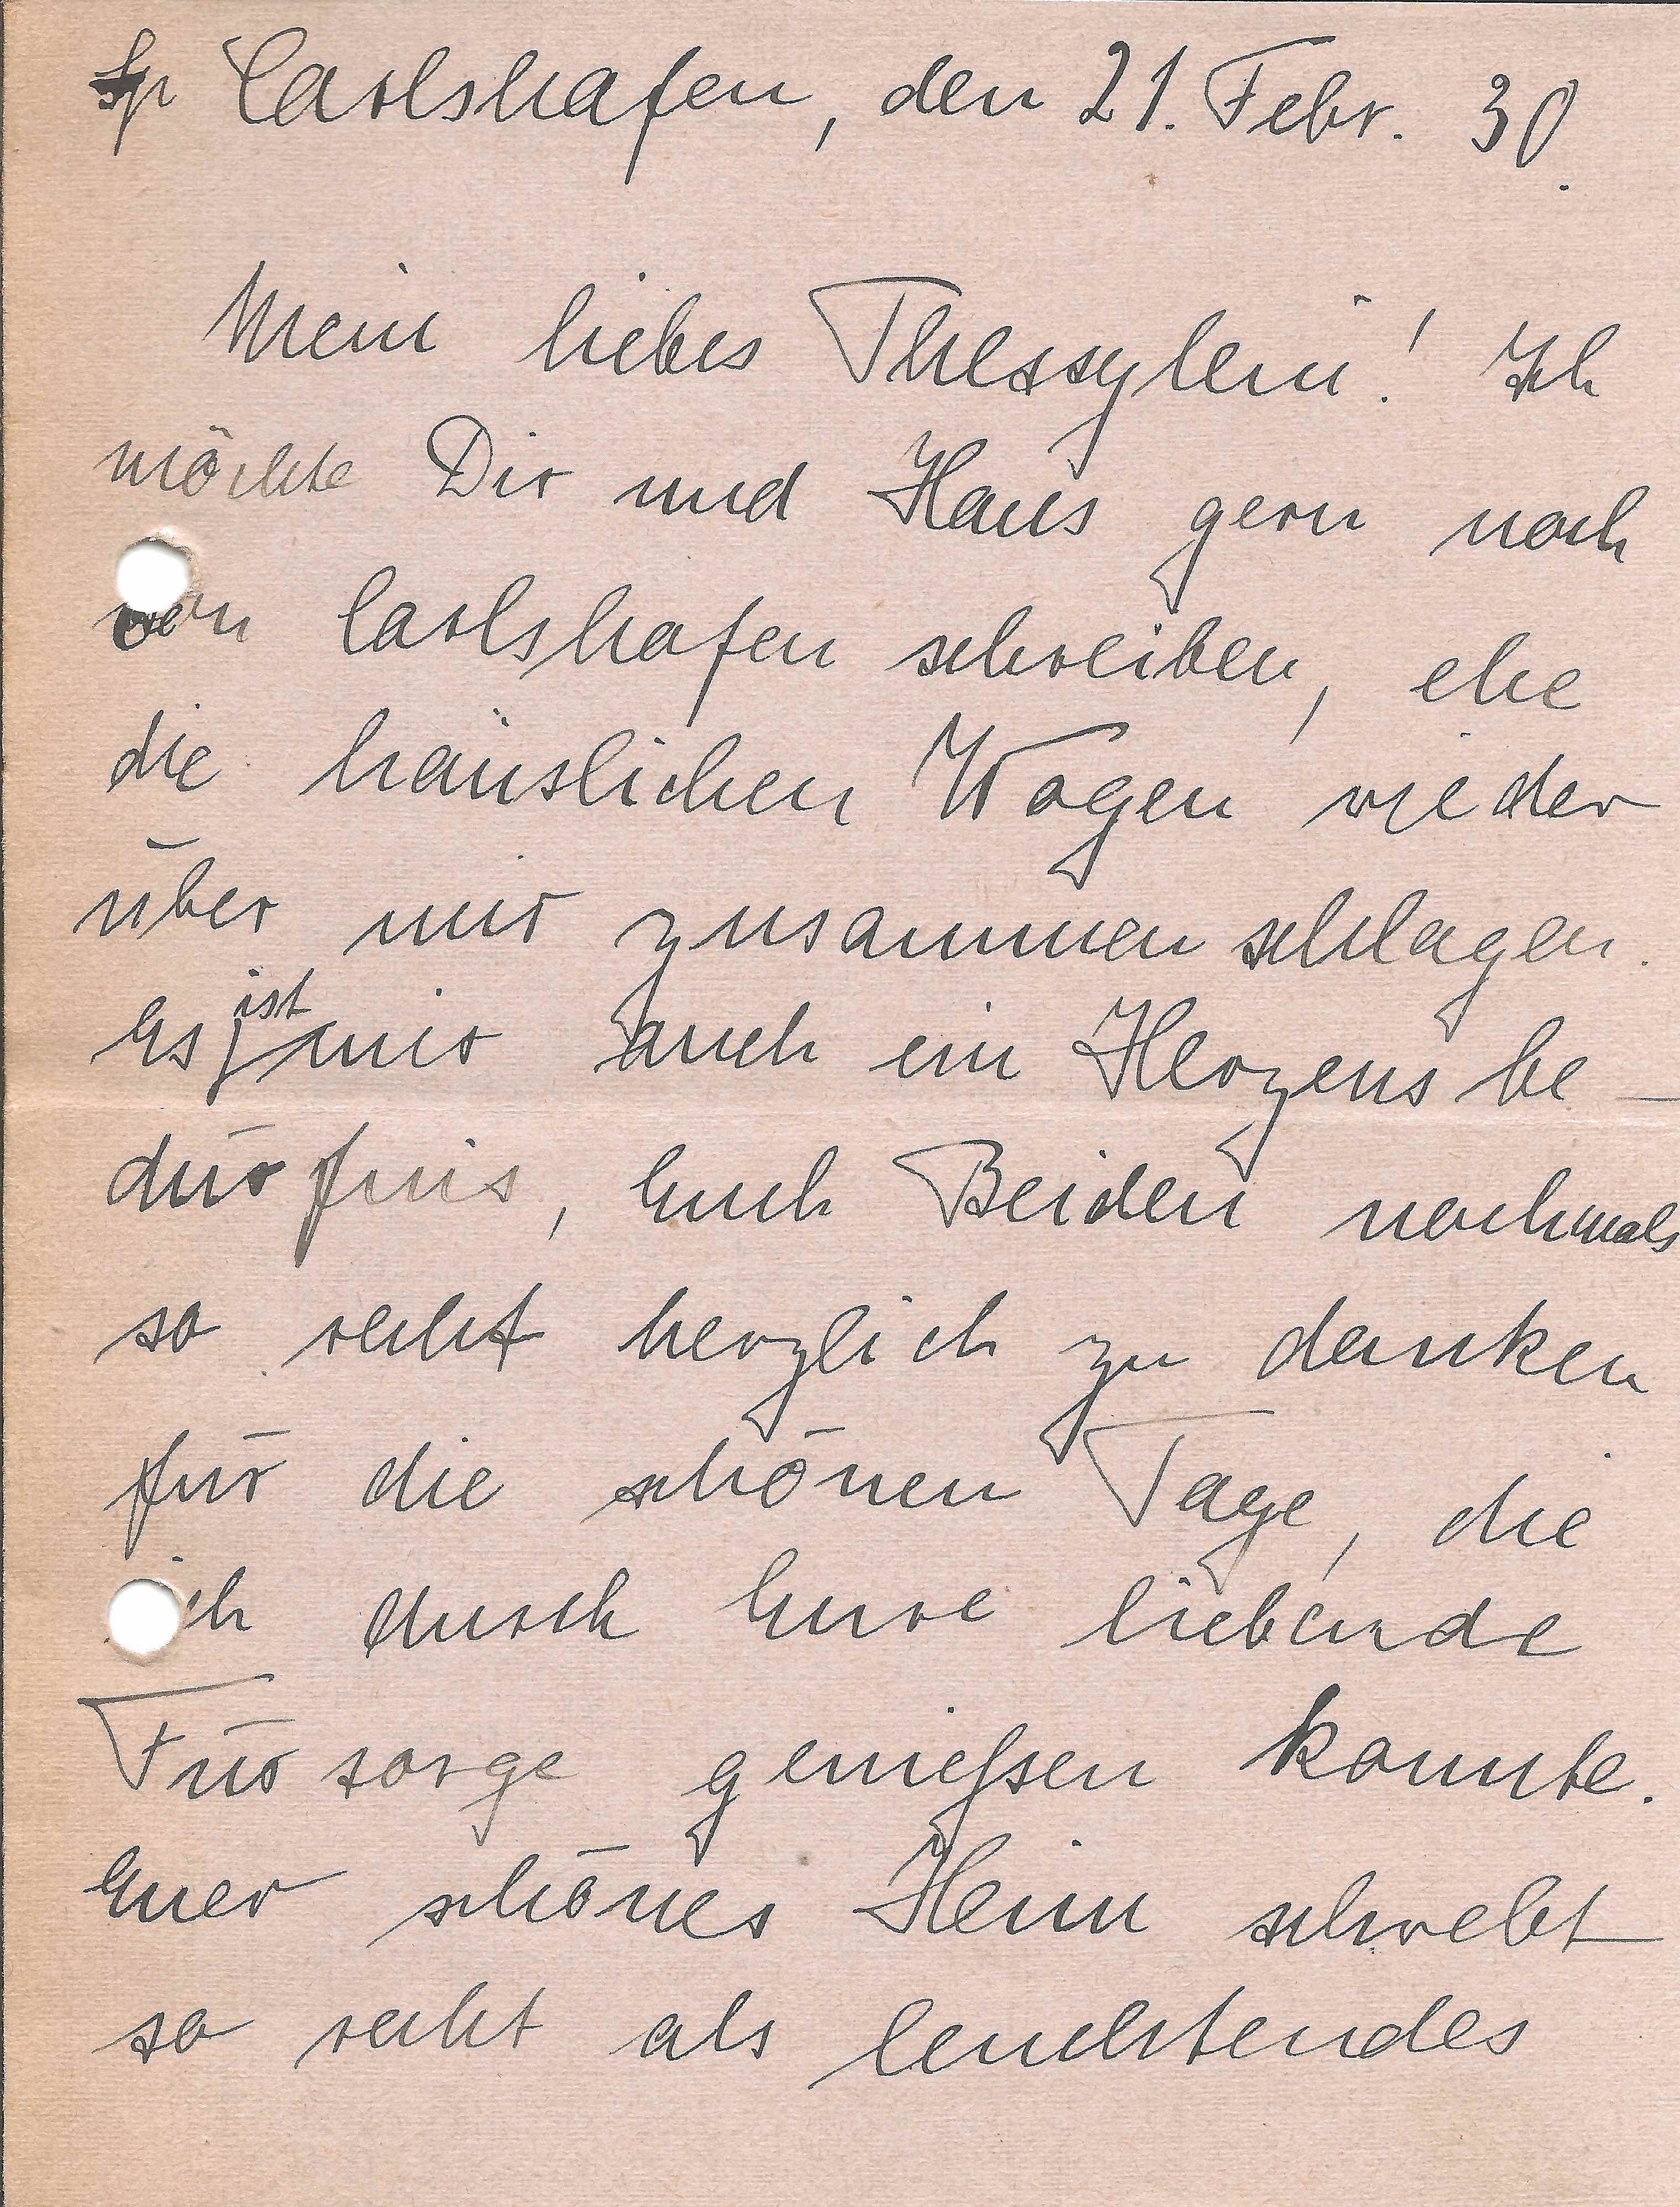 Carlshafen, den 21. Febr. 30.
Mein liebes Thessylein! Ich
möchte Dir und Hans gern noch
von Carlshafen schreiben, ehe
die häuslichen Wogen wieder
über mir zusammen schlagen.
Es ist mir auch ein Herzensbe-
dürfnis, Euch Beiden nochmals
so recht herzlich zu danken
für die schönen Tage, die
ich durch Eure liebende
Fürsorge genießen konnte.
Euer schönes Heim schwebt
so recht als leuchtendes